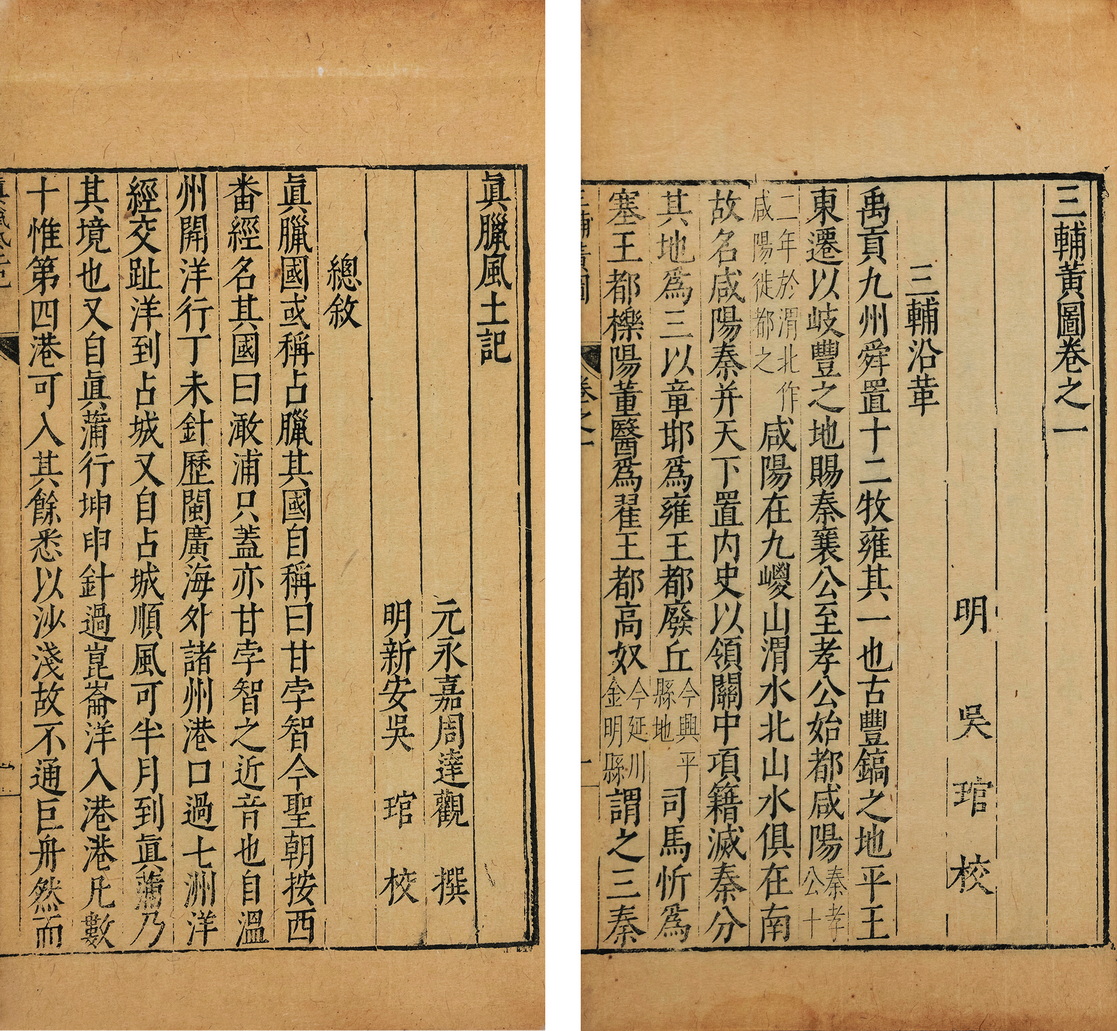 三輔黃圖卷之一
明 吳 琯 校
三輔沿革
禹貢九州舜置十二牧雍其一也古豐鎬之地平王
東遷以岐豐之地賜秦襄公至孝公始都咸陽秦孝公十
二年於渭北作咸陽徙都之咸陽在九嵕山渭水北山水俱在南
故名咸陽秦并天下置内史以領關中項籍滅秦分
其地爲三以章耶爲雍王都廢丘今興平縣地司馬忻爲
塞王都櫟陽董醫爲翟王都高奴今延川金明縣謂之三秦
三輔黃圖 卷之一 一
眞臘風土記
元永嘉周達觀 撰
明新安吳 琯 校
總敘
眞臘國或稱占臘其國自稱曰甘孛智今聖朝按西
番經名其國曰澉浦只蓋亦甘孛智之近音也自溫
州開洋行丁未針歷閩廣海外諸州港口過七洲洋
經交趾洋到占城又自占城順風可半月到眞蒲乃
其境也又自眞蒲行坤申針過崑崙洋入港港凡數
十惟第四港可入其餘悉以沙淺故不通巨舟然而
眞臘風土記 一